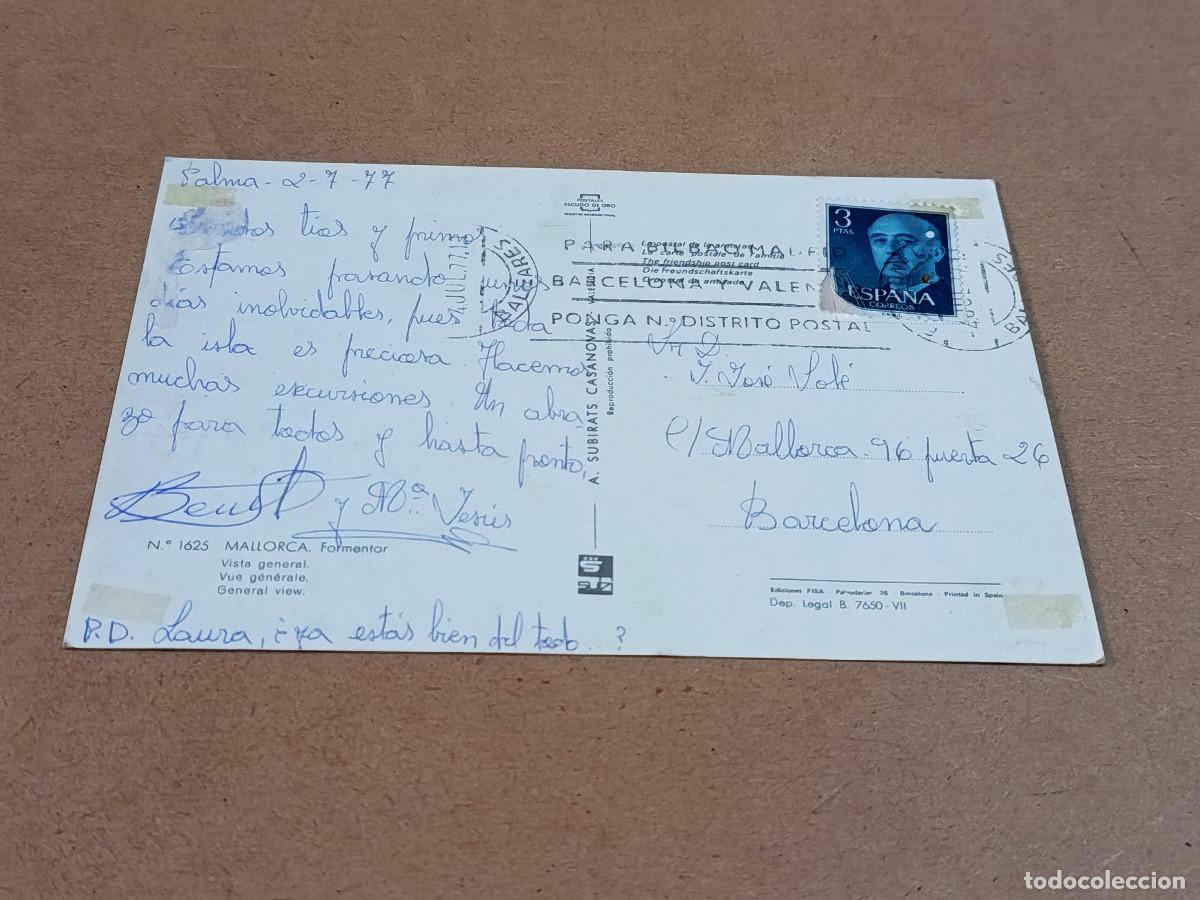 Palma - 2-7-77
tíos y primos
Estamos pasando unos
días inolvidables, pues toda
la isla es preciosa. Hacemos
muchas excursiones. Un abra-
zo para todos y hasta pronto,
y Mª Jesús
N.º 1625 MALLORCA. Formentor
Vista general.
Vue générale.
General view.
P.D. Laura, ¿ya estás bien del todo..?
POSTALES
ESCUDO DE ORO
A. SUBIRATS CASANOVAS VALENCIA
Reproducción prohibida
La postal de la amistad
La carte postale de l'amitié
The friendship post card
Die Freundschaftskarte
4 JUL. 77
BALEARES
PARA BILBAO MA
BARCELONA Y VALEN
PONGA N.º DISTRITO POSTAL
3
PTAS
ESPAÑA
CORREOS
Sr. D.
J. José Solé
C/ Mallorca. 96 puerta 26
Barcelona
Ediciones FISA - Palaudarias 26 - Barcelona - Printed in Spain
Dep. Legal B. 7650-VII
todocoleccion